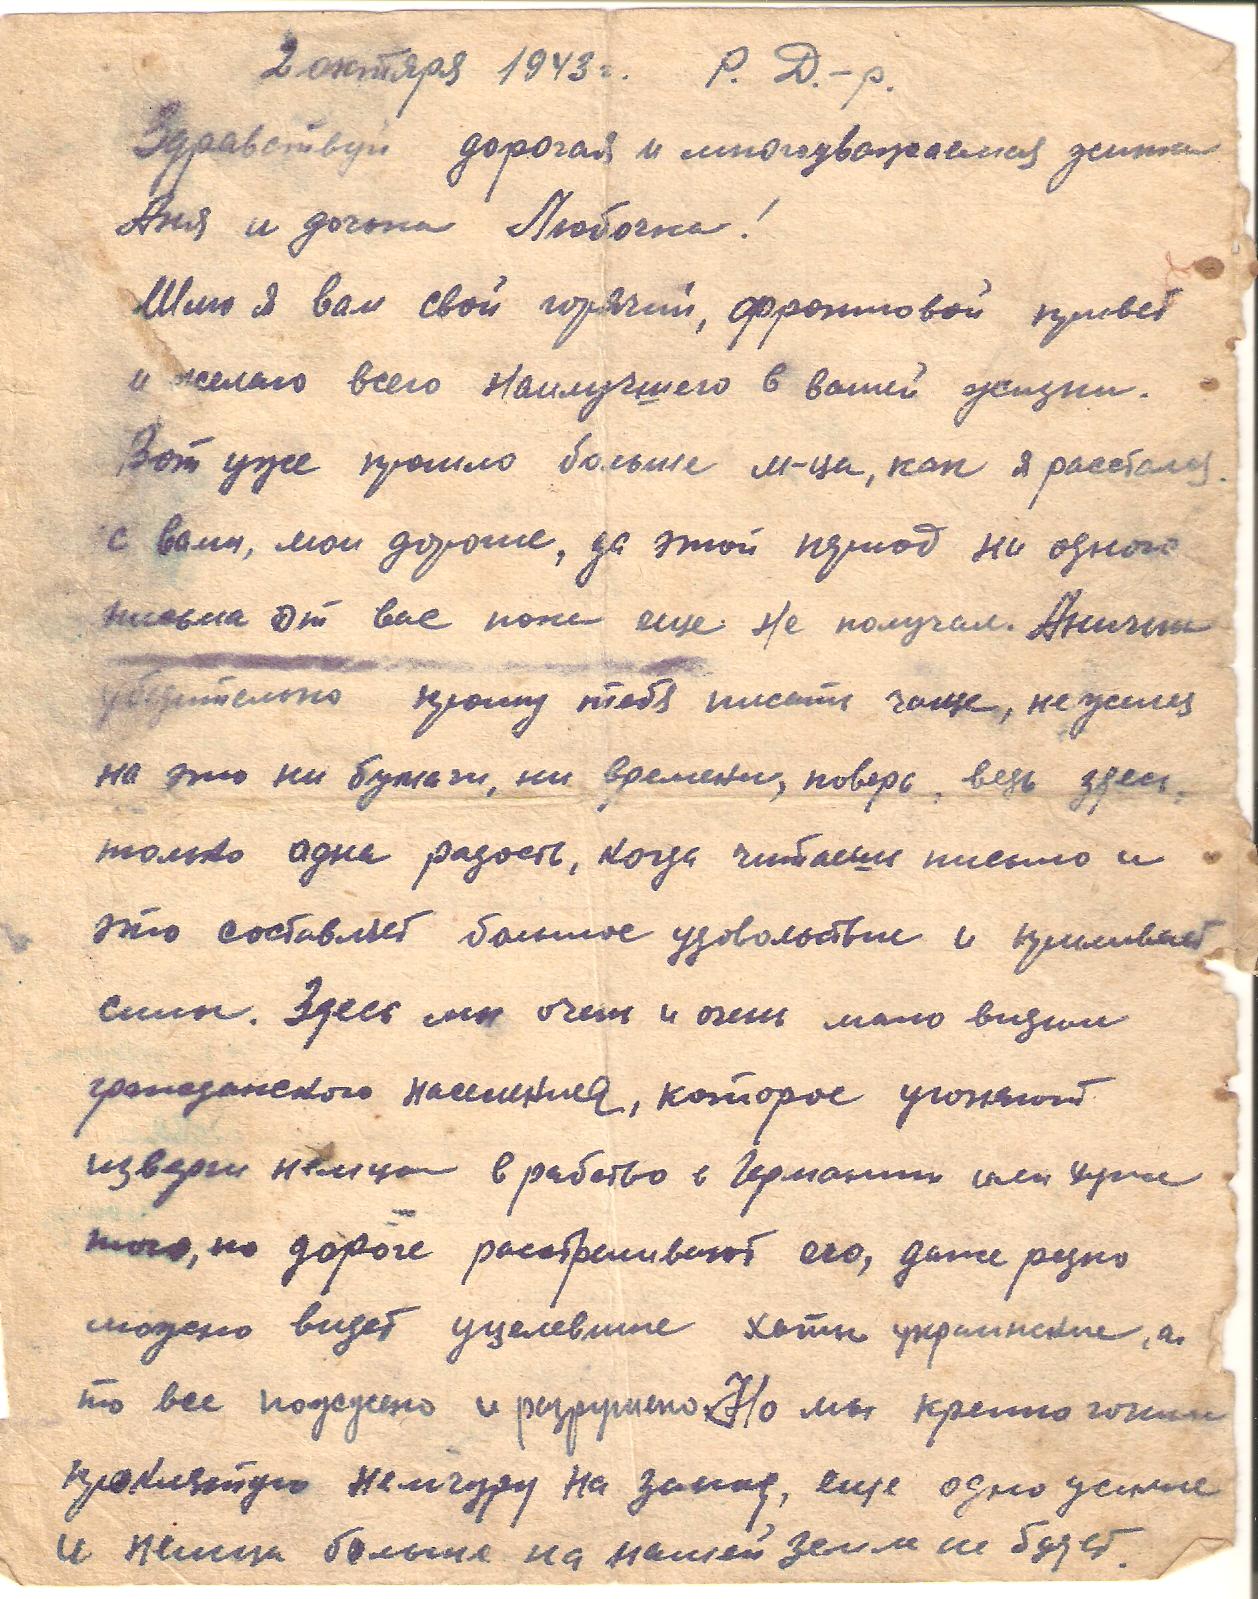 2 октября 1943 г. Р. Д.-р.
Здравствуй дорогая и многоуважаемая жинка
Аня и дочька Любочка!
Шлю я вам свой горячий, фронтовой привет
и желаю всего наилучшего в вашей жизни.
Вот уже прошло больше м-ца, как я расстался
с вами, мои дорогие, за этой период ни одного
письма от вас пока еще не получал. Анички
убедительно прошу тебя писать чаще, не жилея
на это ни бумаги, ни времени, поверь, ведь здесь
только одна радость, когда читаеши письмо и
это составляет большое удовольствие и приливает
силы. Здесь мы очень и очень мало видим
гражданского населения, которое угоняют
изверги немцы в рабство в Германию или хуже
того, по дороге расстреливают его, даже редко
можно видет уцелевшие хаты украинские, а
то все пожжено и разрушено. Но мы крепко гоним
проклятую немчуру на запад, еще одно усилие
и немца больше на нашей земли не будет.